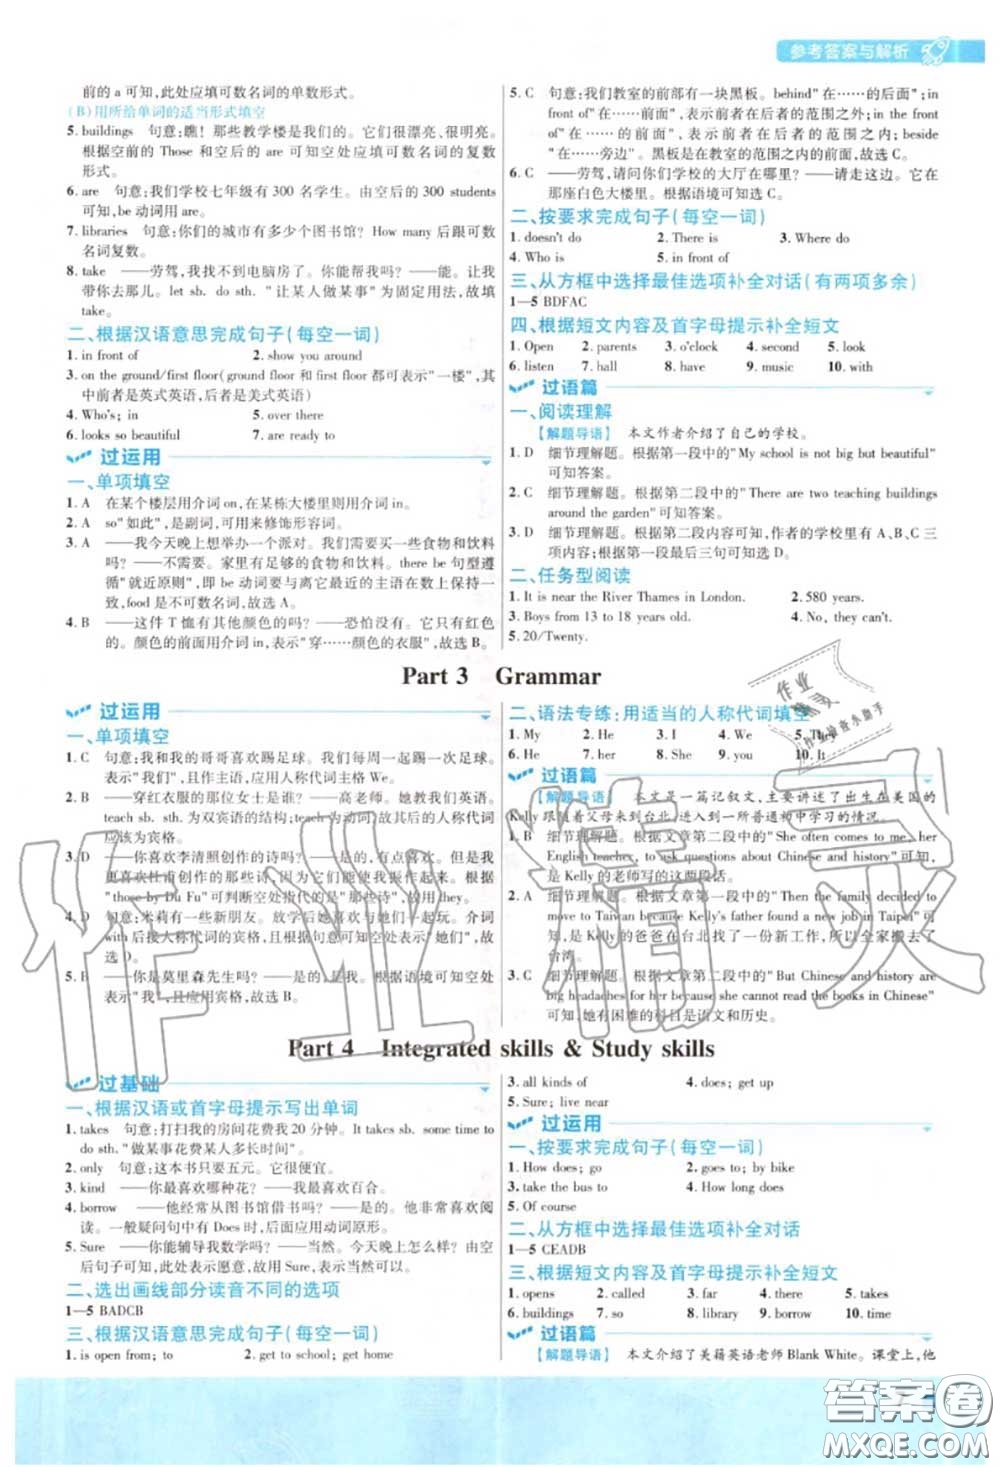 参考答案与解析
前的 a 可知,此处应填可数名词的单数形式。
(B)用所给单词的适当形式填空
5. buildings 句意:瞧！那些教学楼是我们的。它们很漂亮、很明亮。
根据空前的 Those 和空后的 are 可知空处应填可数名词的复数
形式。
6. are 句意:我们学校七年级有 300 名学生。由空后的 300 students
可知,be 动词用 are。
7. libraries 句意:你们的城市有多少个图书馆？How many 后跟可数
名词复数。
8. take ——劳驾,我找不到电脑房了。你能帮我吗？——能。让我
带你去那儿。let sb. do sth. "让某人做某事"为固定用法,故填
take。
二、根据汉语意思完成句子(每空一词)
1. in front of 2. show you around
3. on the ground/first floor(ground floor 和 first floor 都可表示"一楼",其
中前者是英式英语,后者是美式英语)
4. Who's; in 5. over there
6. looks so beautiful 7. are ready to
过运用
一、单项填空
1. A 在某个楼层用介词 on,在某栋大楼里则用介词 in。
2. A so"如此",是副词,可用来修饰形容词。
3. A ——我今天晚上想举办一个派对。我们需要买一些食物和饮料
吗？——不需要。家里有足够的食物和饮料。there be 句型遵
循"就近原则",即 be 动词要与离它最近的主语在数上保持一
致,food 是不可数名词,故选 A。
4. B ——这件 T 恤有其他颜色的吗？——恐怕没有。它只有红色
的。颜色的前面用介词 in,表示"穿……颜色的衣服",故选 B。
5. C 句意:我们教室的前部有一块黑板。behind"在……的后面";in
front of"在……前面",表示前者在后者的范围之外;in the front
of"在……的前面",表示前者在后者的范围之内;beside
"在……旁边"。黑板是在教室的范围之内的前面,故选 C。
6. C ——劳驾,请问你们学校的大厅在哪里？——请走这边。它在
那座白色大楼里。根据语境可知选 C。
二、按要求完成句子(每空一词)
1. doesn't do 2. There is 3. Where do
4. Who is 5. in front of
三、从方框中选择最佳选项补全对话(有两项多余)
1—5 BDFAC
四、根据短文内容及首字母提示补全短文
1. Open 2. parents 3. o'clock 4. second 5. look
6. listen 7. hall 8. have 9. music 10. with
过语篇
一、阅读理解
【解题导语】 本文作者介绍了自己的学校。
1. D 细节理解题。根据第一段中的"My school is not big but beautiful"
可知答案。
2. C 细节理解题。根据第二段中的"There are two teaching buildings
around the garden"可知答案。
3. D 细节理解题。根据第二段内容可知,作者的学校里有 A、B、C 三
项内容;根据第一段最后三句可知选 D。
二、任务型阅读
1. It is near the River Thames in London. 2. 580 years.
3. Boys from 13 to 18 years old. 4. No, they can't.
5. 20/Twenty.
Part 3 Grammar
过运用
一、单项填空
1. C 句意:我和我的哥哥喜欢踢足球。我们每周踢一次足球。
表示"我们",且作主语,应用人称代词主格 We。
2. B ——穿红衣服的那位女士是谁？——高老师。她教我们英语。
teach sb. sth. 为双宾语的结构;teach 为动词,故其后的人称代词
应该为宾格。
3. D ——你喜欢李清照创作的诗吗？——是的,有点喜欢。但我
更喜欢杜甫创作的那些,因为它们能使我振作起来。根据
"those by Du Fu"可判断空处指代的是"那些诗",故用 they。
4. D 句意:米莉有一些新朋友。放学后她喜欢与她们一起玩。介词
with 后接人称代词的宾格,且根据句意可知空处表示"她们",故
选 D。
5. B ——你是莫里森先生吗？——是的,是我。根据语境可知空处
表示"我",且应用宾格,故选 B。
二、语法专练:用适当的人称代词填空
1. My 2. He 3. I 4. We 5. They
6. He 7. her 8. She 9. you 10. It
过语篇
【解题导语】 本文是一篇记叙文,主要讲述了出生在美国的
Kelly 跟随着父母来到台北,进入到一所普通初中学习的情况。
1. B 细节理解题。根据文章第二段中的"She often comes to me, her
English teacher, to ask questions about Chinese and history"可知,
是 Kelly 的老师写的这两段话。
2. A 细节理解题。根据文章第一段中的"Then the family decided to
move to Taiwan because Kelly's father found a new job in Taipei"可
知,是 Kelly 的爸爸在台北找了一份新工作,所以全家搬去了
台湾。
3. C 细节理解题。根据文章第二段中的"But Chinese and history are
big headaches for her because she cannot read the books in Chinese"
可知,她有困难的科目是语文和历史。
Part 4 Integrated skills & Study skills
过基础
一、根据汉语或首字母提示写出单词
1. takes 句意:打扫我的房间花费我 20 分钟。It takes sb. some time to
do sth. "做某事花费某人多长时间"。
2. only 句意:这本书只要五元。它很便宜。
3. kind ——你最喜欢哪种花？——我最喜欢百合。
4. borrow ——他经常从图书馆借书吗？——是的。他非常喜欢阅
读。一般疑问句中有 Does 时,后面应用动词原形。
5. Sure ——你能辅导我数学吗？——当然。今天晚上怎么样？由空
后句子可知,此处表示愿意,故用 Sure,表示当然可以。
二、选出画线部分读音不同的选项
1—5 BADCB
三、根据汉语意思完成句子(每空一词)
1. is open from; to 2. get to school; get home
3. all kinds of 4. does; get up
5. Sure; live near
过运用
一、按要求完成句子(每空一词)
1. How does; go 2. goes to; by bike
3. take the bus to 4. How long does
5. Of course
二、从方框中选择最佳选项补全对话
1—5 CEADB
三、根据短文内容及首字母提示补全短文
1. opens 2. called 3. far 4. there 5. takes
6. buildings 7. so 8. library 9. borrow 10. time
过语篇
【解题导语】 本文介绍了美籍英语老师 Blank White。课堂上,他
作业精灵
作业
精灵
作业检查小助手
答案卷
MXQE.COM